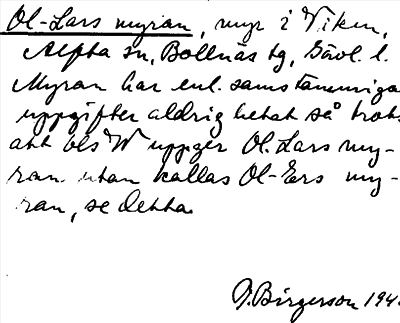 Ol-Lars myran, myr i Viken,
Alfta sn, Bollnäs tg, Gävl. l.
Myran har enl. samstämmiga
uppgifter aldrig hetat så trots
att bls W uppger Ol. Lars my-
ran utan kallas Ol-Ers my-
ran, se detta.
Birgerson 194